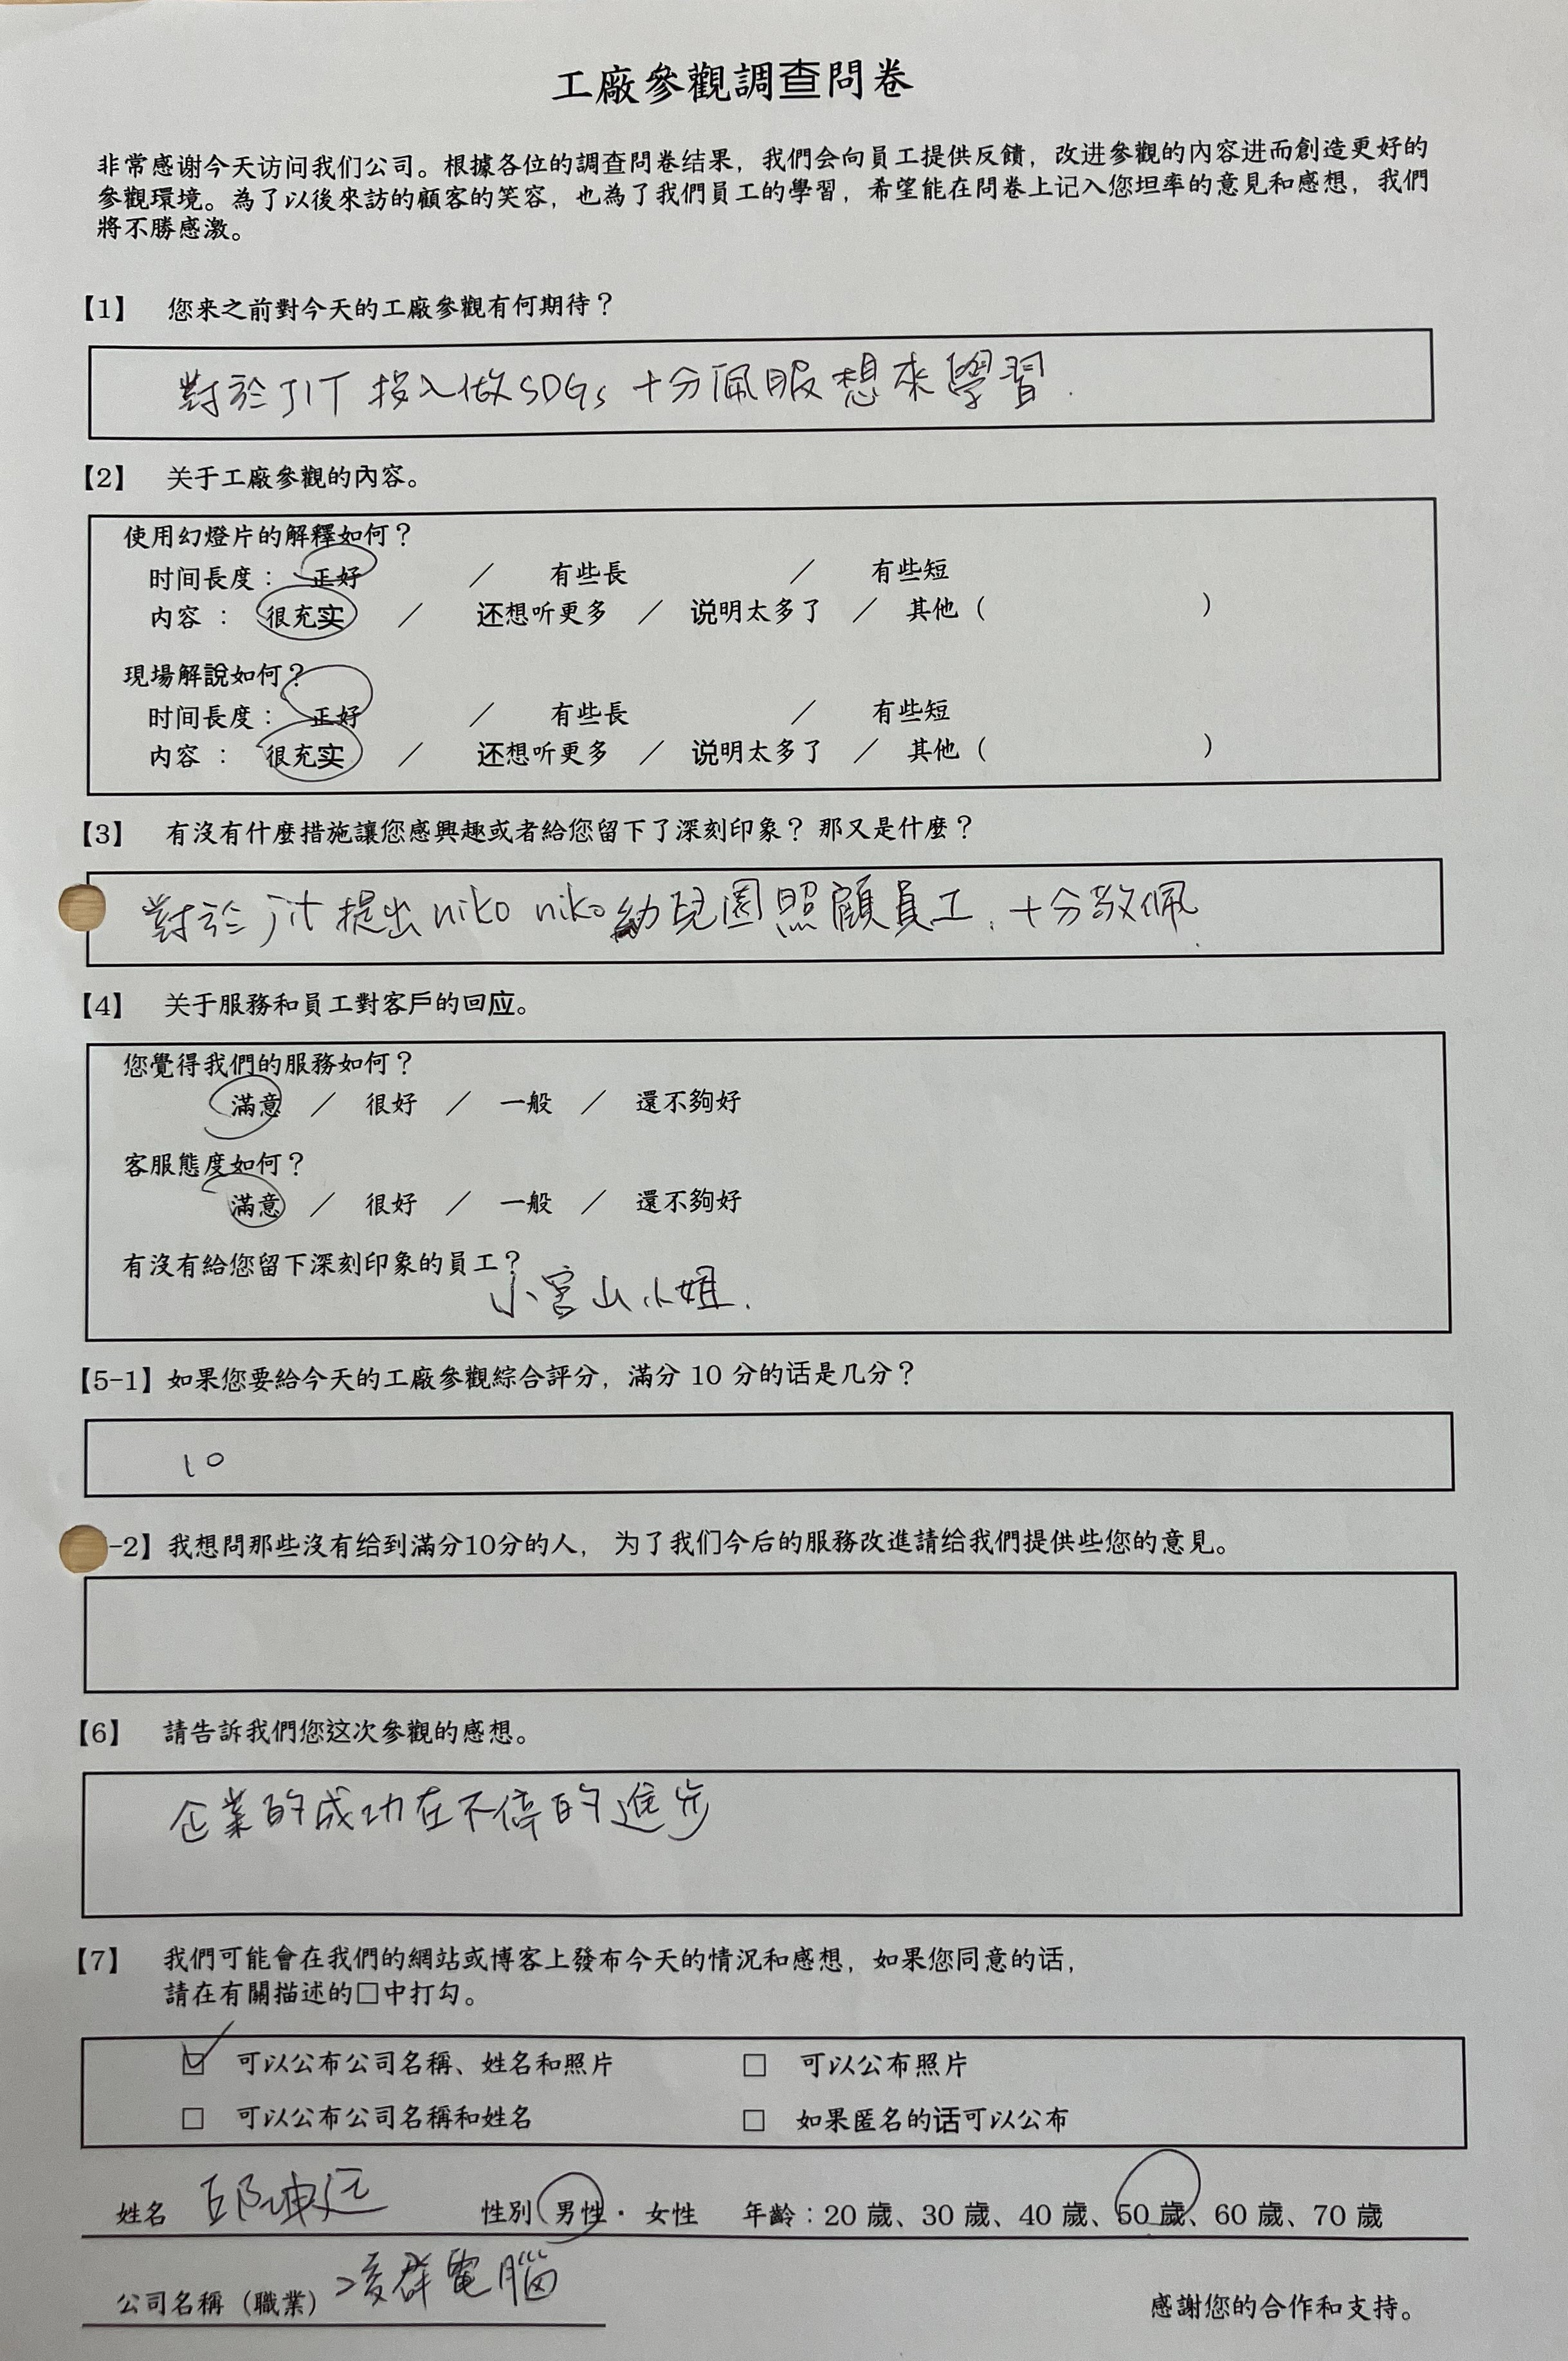 工廠參觀調查問卷
非常感谢今天访问我们公司。根據各位的調查問卷结果，我們会向員工提供反饋，改进參觀的內容进而創造更好的
參觀環境。為了以後來訪的顧客的笑容，也為了我們員工的學習，希望能在問卷上记入您坦率的意見和感想，我們
將不勝感激。
【1】 您来之前對今天的工廠參觀有何期待？
對於JIT 投入做SDGs 十分佩服想來學習.
【2】 关于工廠參觀的內容。
使用幻燈片的解釋如何？
时间長度： 正好 ／ 有些長 ／ 有些短
内容 ： 很充实 ／ 还想听更多 ／ 说明太多了 ／ 其他（ ）
現場解說如何？
时间長度： 正好 ／ 有些長 ／ 有些短
内容 ： 很充实 ／ 还想听更多 ／ 说明太多了 ／ 其他（ ）
【3】 有沒有什麼措施讓您感興趣或者給您留下了深刻印象？那又是什麼？
對於 jit 提出 niko niko 幼兒園照顧員工. 十分敬佩.
【4】 关于服務和員工對客戶的回应。
您覺得我們的服務如何？
滿意 ／ 很好 ／ 一般 ／ 還不夠好
客服態度如何？
滿意 ／ 很好 ／ 一般 ／ 還不夠好
有沒有給您留下深刻印象的員工？
小宮山小姐.
【5-1】如果您要給今天的工廠參觀綜合評分，滿分 10 分的话是几分？
10
-2】我想問那些沒有给到滿分10分的人， 为了我们今后的服務改進請给我們提供些您的意見。
【6】 請告訴我們您这次參觀的感想。
企業的成功在不停的進步
【7】 我們可能會在我們的網站或博客上發布今天的情況和感想，如果您同意的话，
請在有關描述的□中打勾。
☑ 可以公布公司名稱、姓名和照片 □ 可以公布照片
□ 可以公布公司名稱和姓名 □ 如果匿名的话可以公布
姓名 邱坤远 性別 男性・ 女性 年齡：20 歲、30 歲、40 歲、50 歲、60 歲、70 歲
公司名稱（職業） 凌群電腦
感謝您的合作和支持。